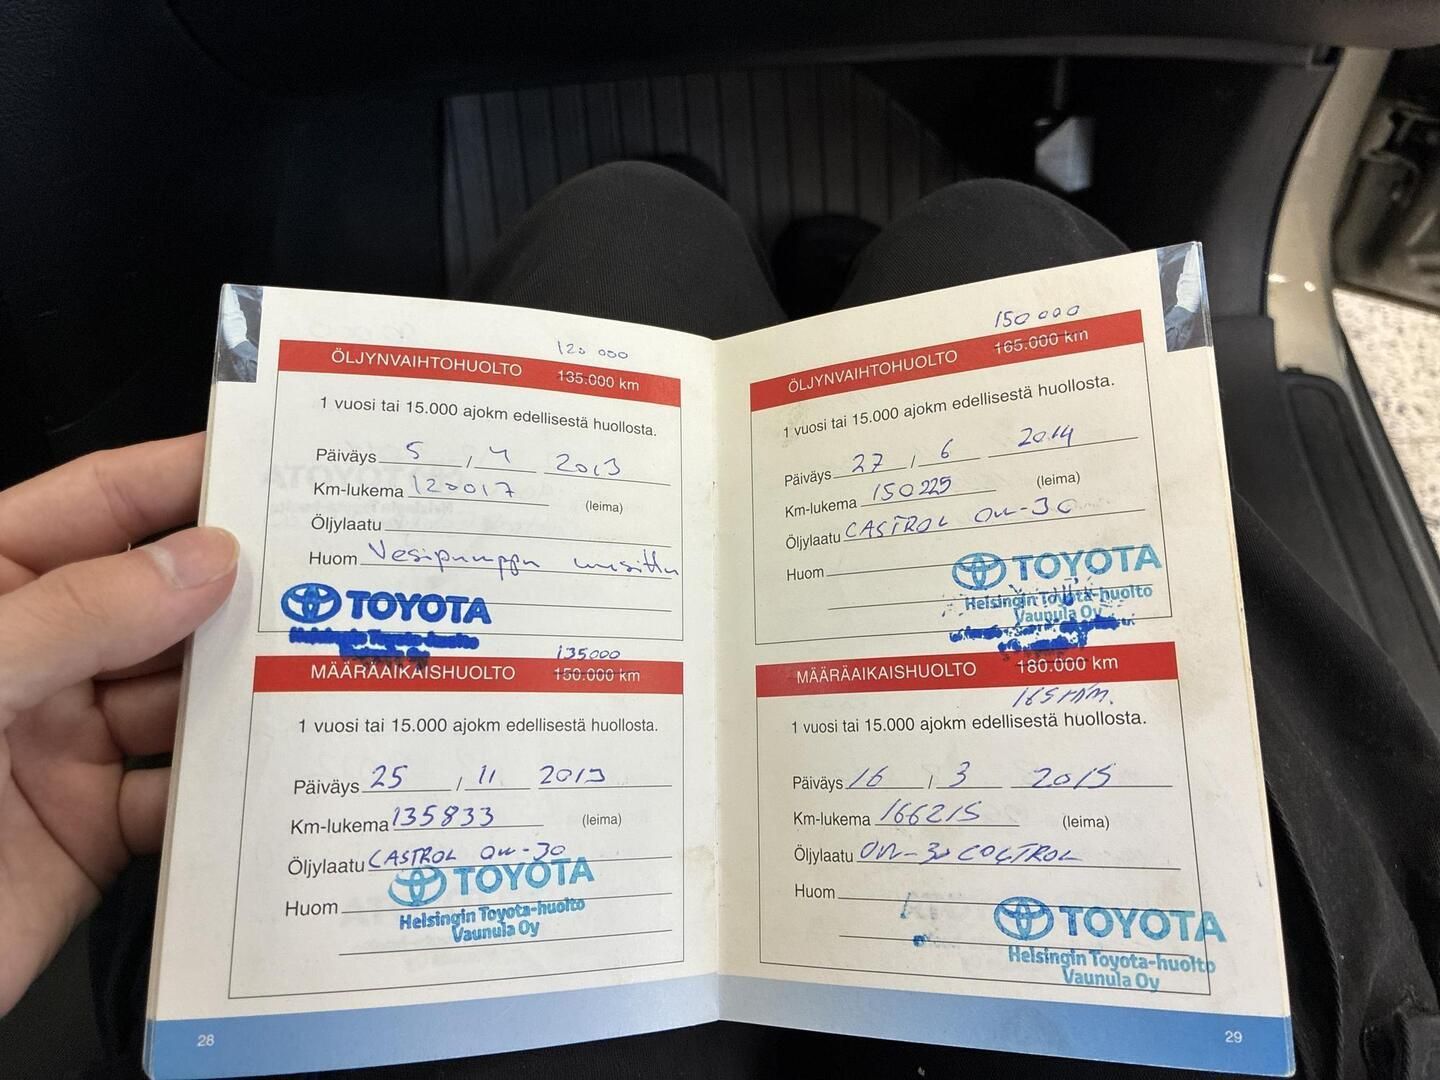 120 000
ÖLJYNVAIHTOHUOLTO 135.000 km
1 vuosi tai 15.000 ajokm edellisestä huollosta.
Päiväys 5 / 4 2013
Km-lukema 120017 (leima)
Öljylaatu
Huom Vesipumppu uusittu
TOYOTA
Helsingin Toyota-huolto
Oy
135000
MÄÄRÄAIKAISHUOLTO 150.000 km
1 vuosi tai 15.000 ajokm edellisestä huollosta.
Päiväys 25 / 11 2013
Km-lukema 135833 (leima)
Öljylaatu CASTROL 0W-30
Huom
TOYOTA
Helsingin Toyota-huolto
Vaunula Oy
28
150 000
ÖLJYNVAIHTOHUOLTO 165.000 km
1 vuosi tai 15.000 ajokm edellisestä huollosta.
Päiväys 27 / 6 2014
Km-lukema 150225 (leima)
Öljylaatu CASTROL 0W-30
Huom
TOYOTA
Helsingin Toyota-huolto
Vaunula Oy
MÄÄRÄAIKAISHUOLTO 180.000 km
1 vuosi tai 15.000 ajokm edellisestä huollosta.
Päiväys 16 / 3 2015
Km-lukema 166215 (leima)
Öljylaatu 0W-30 COLTROL
Huom
TOYOTA
Helsingin Toyota-huolto
Vaunula Oy
29